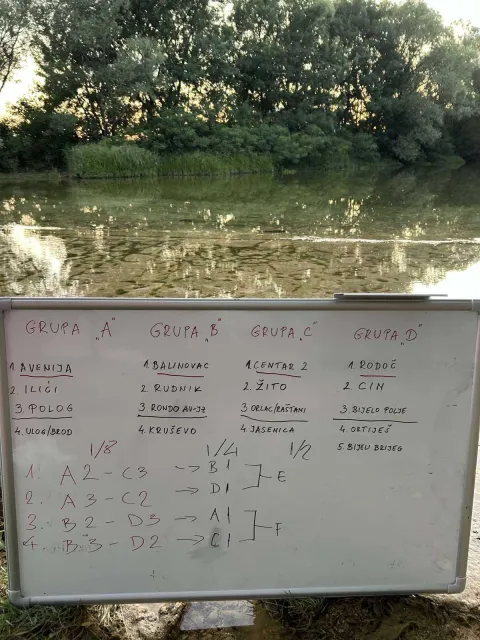 GRUPA „A" GRUPA „B" GRUPA „C" GRUPA „D"
1 AVENIJA 1. BALINOVAC 1 CENTAR 2 1. RODOČ
2. ILIĆI 2. RUDNIK 2. ŽITO 2 CIM
3. POLOG 3. RONDO AV-JZ 3. ORLAC/RAŠTANI 3. BIJELO POLJE
4. ULOG/BROD 4. KRUŠEVO 4. JASENICA 4. ORTIJEŠ
5. BIJELI BRIJEG
1/8 1/4 1/2
1. A2 - C3 → B1
2. A3 - C2 → D1 E
3. B2 - D3 → A1
4. B3 - D2 → C1 F